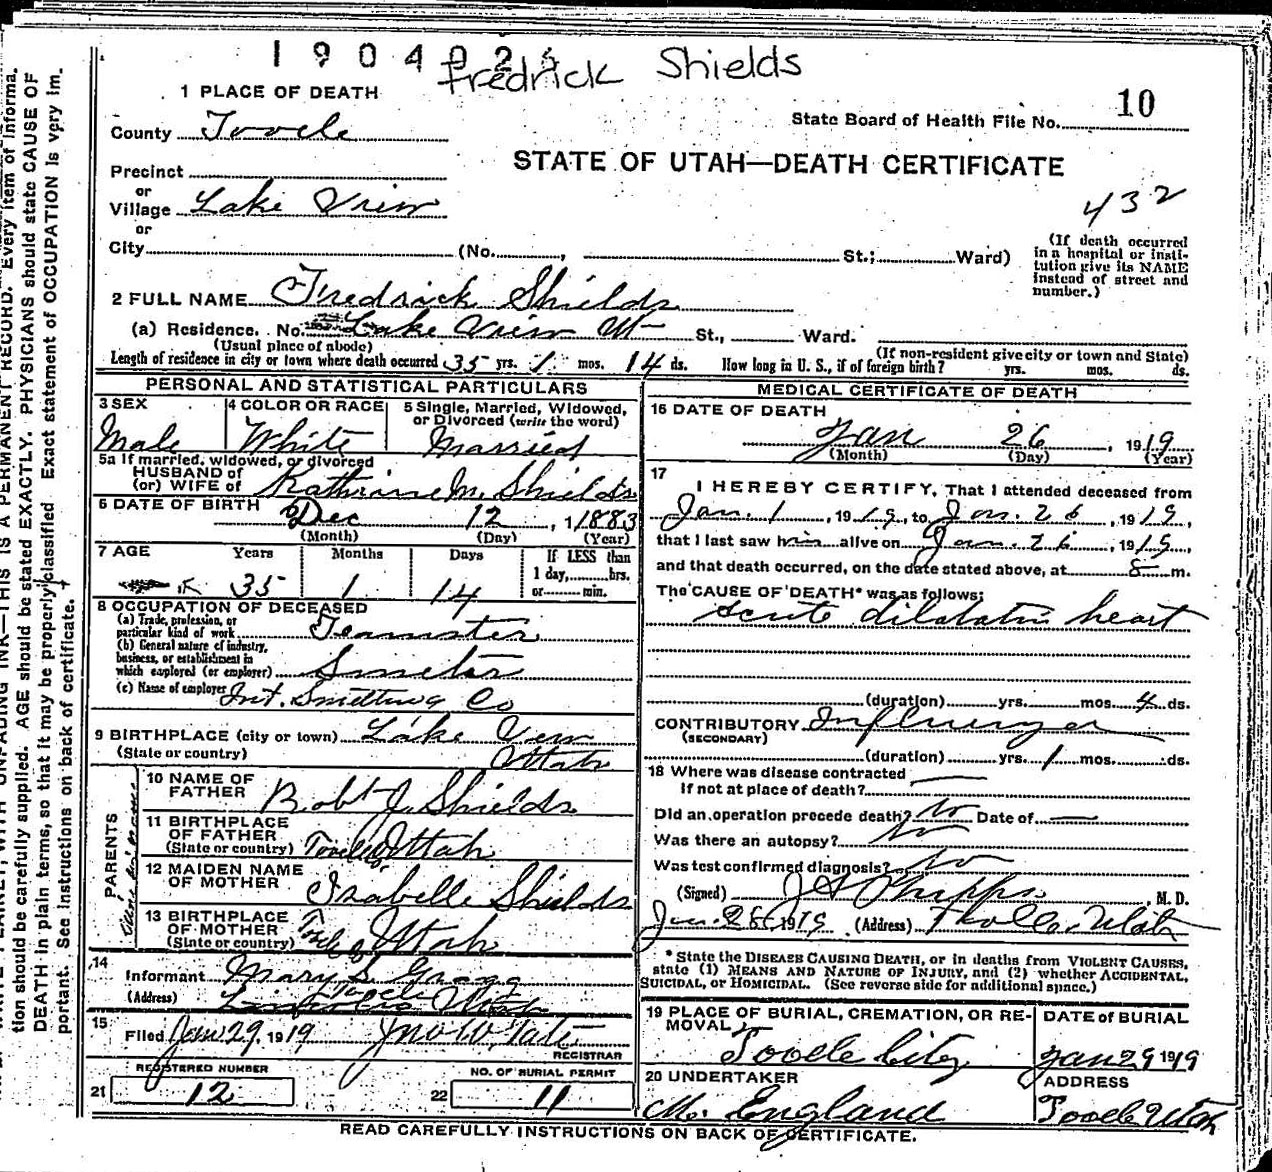 1904024
Fredrick Shields
10
1 PLACE OF DEATH
State Board of Health File No.
County Tooele
STATE OF UTAH—DEATH CERTIFICATE
Precinct
or
Village Lake View
432
or
City (No. , St.; Ward)
(If death occurred in a hospital or institution give its NAME instead of street and number.)
2 FULL NAME Fredrick Shields
(a) Residence. No. Lake View Ut St., Ward.
(Usual place of abode)
(If non-resident give city or town and State)
Length of residence in city or town where death occurred 35 yrs. 1 mos. 14 ds. How long in U. S., if of foreign birth? yrs. mos. ds.
PERSONAL AND STATISTICAL PARTICULARS
3 SEX
Male
4 COLOR OR RACE
White
5 Single, Married, Widowed, or Divorced (write the word)
Married
5a If married, widowed, or divorced
HUSBAND of
(or) WIFE of Kathrine M. Shields
6 DATE OF BIRTH Dec 12, 1883
(Month) (Day) (Year)
7 AGE Years Months Days If LESS than
1 day, hrs.
or min.
35 1 14
8 OCCUPATION OF DECEASED
(a) Trade, profession, or particular kind of work Teamster
(b) General nature of industry, business, or establishment in which employed (or employer) Smelter
(c) Name of employer Int. Smelting Co
9 BIRTHPLACE (city or town) Lake View
(State or country) Utah
PARENTS
10 NAME OF FATHER Robt J. Shields
11 BIRTHPLACE OF FATHER
(State or country) Tooele Utah
12 MAIDEN NAME OF MOTHER Isabelle Shields
13 BIRTHPLACE OF MOTHER
(State or country) Tooele Utah
14
Informant Mary S. Gragg
(Address) Tooele Utah
15
Filed Jan 29, 1919 Jno W. Tate
REGISTRAR
REGISTERED NUMBER
21 12
NO. OF BURIAL PERMIT
22 11
MEDICAL CERTIFICATE OF DEATH
16 DATE OF DEATH
Jan 26, 1919
(Month) (Day) (Year)
17
I HEREBY CERTIFY, That I attended deceased from
Jan. 1, 1919, to Jan. 26, 1919,
that I last saw him alive on Jan. 26, 1919,
and that death occurred, on the date stated above, at 8 m.
The CAUSE OF DEATH* was as follows:
acute dilatation heart
(duration) yrs. mos. 4 ds.
CONTRIBUTORY Influenza
(SECONDARY)
(duration) yrs. 1 mos. ds.
18 Where was disease contracted
If not at place of death?
Did an operation precede death? No Date of
Was there an autopsy? No
Was test confirmed diagnosis? No
(Signed) J A Phipps, M. D.
Jan 28, 1919 (Address) Tooele, Utah
* State the DISEASE CAUSING DEATH, or in deaths from VIOLENT CAUSES,
state (1) MEANS AND NATURE OF INJURY, and (2) whether ACCIDENTAL,
SUICIDAL, or HOMICIDAL. (See reverse side for additional space.)
19 PLACE OF BURIAL, CREMATION, OR REMOVAL
Tooele City
DATE of BURIAL
Jan 29 1919
20 UNDERTAKER
M. England
ADDRESS
Tooele Utah
READ CAREFULLY INSTRUCTIONS ON BACK OF CERTIFICATE.
THIS IS A PERMANENT RECORD. Every item of informa-
tion should be carefully supplied. AGE should be stated EXACTLY. PHYSICIANS should state CAUSE OF
DEATH in plain terms, so that it may be properly classified. Exact statement of OCCUPATION is very im-
portant. See instructions on back of certificate.